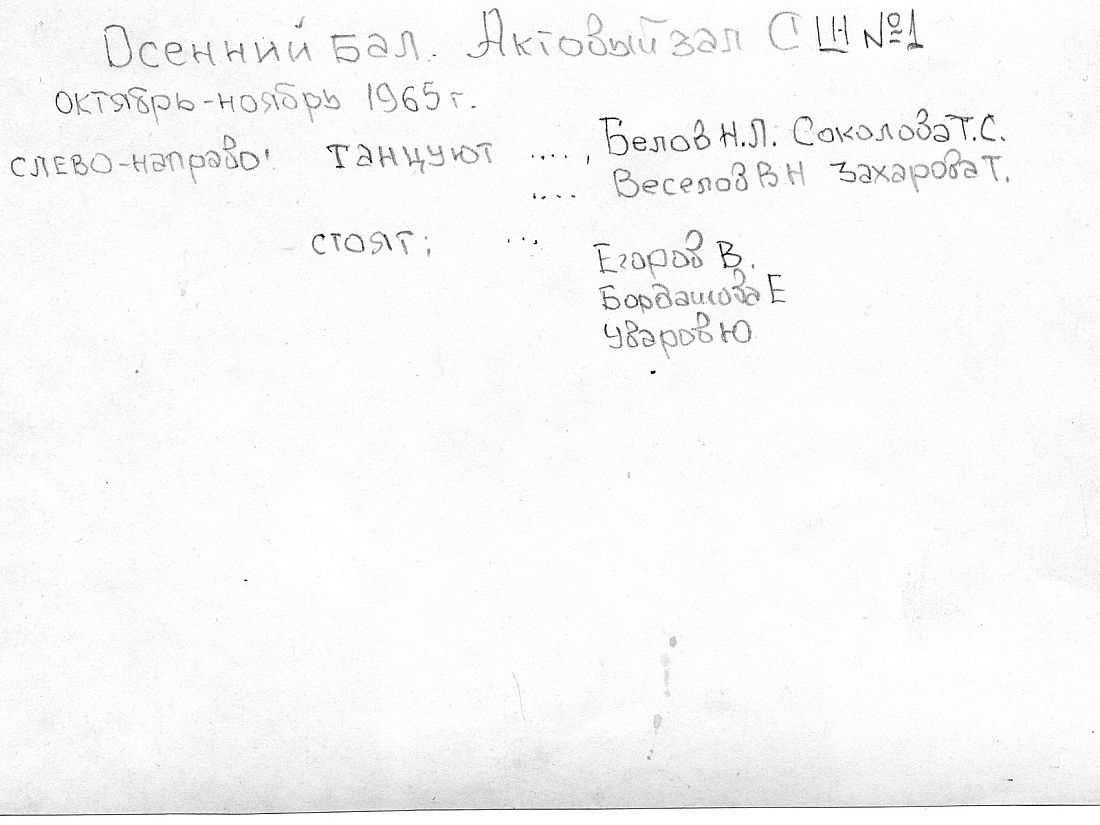 Осенний Бал. Актовый зал СШ №1
октябрь-ноябрь 1965 г.
слево-направо: танцуют ...., Белов Н.Л. Соколова Т.С.
.... Веселов В Н Захарова Т.
стоят; ... Егоров В.
Бордашова Е
Уваров Ю